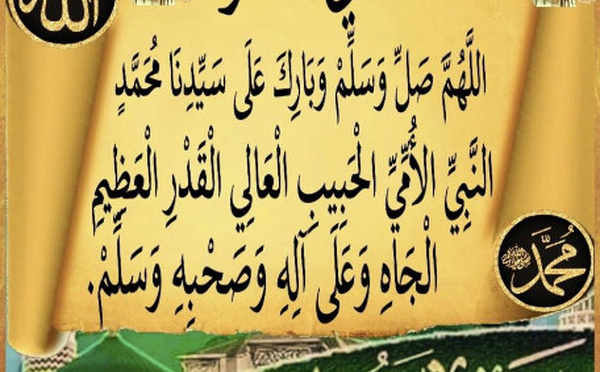 الله
اللَّهُمَّ صَلِّ وَسَلِّمْ وَبَارِكَ عَلَى سَيِّدِنَا مُحَمَّدٍ
النَّبِيِّ الأُمِّيِّ الْحَبِيبِ الْعَالِي الْقَدْرِ الْعَظِيمِ
الْجَاهِ وَعَلَى آلِهِ وَصَحْبِهِ وَسَلِّمْ.
محمد